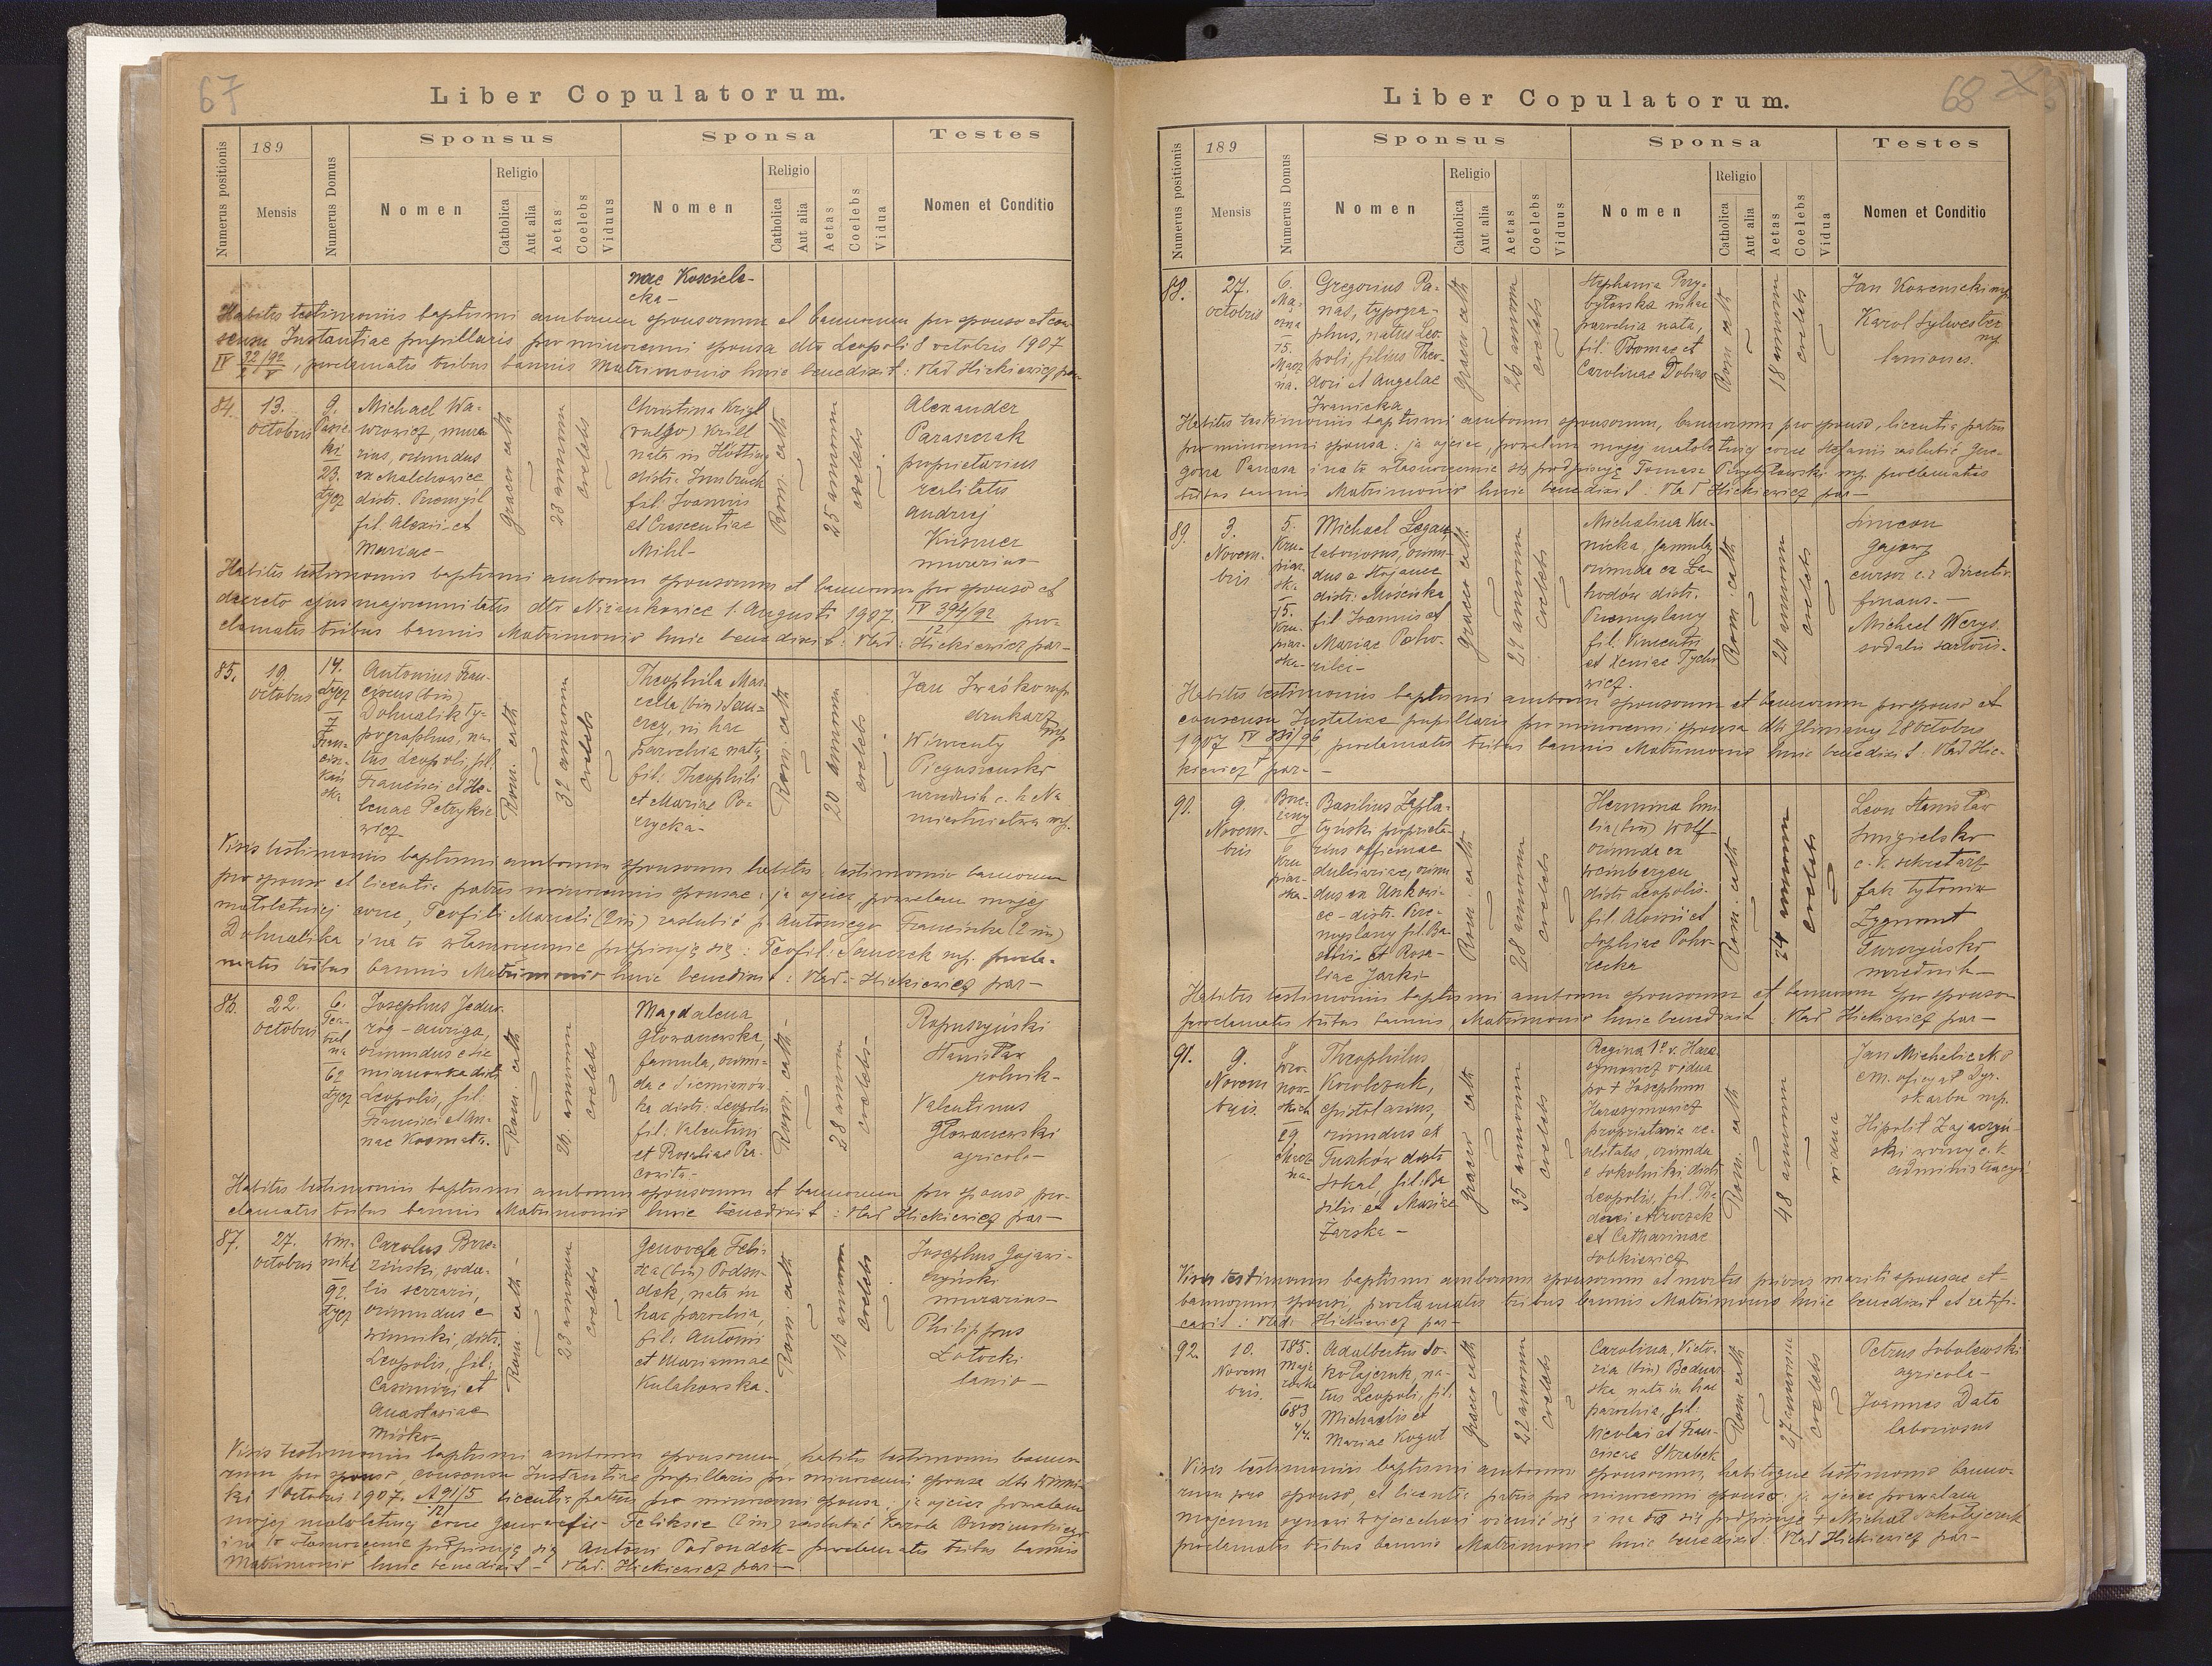 67
Liber Copulatorum.
Numerus positionis
189
Mensis
Numerus Domus
Sponsus
Nomen
Religio
Catholica
Aut alia
Aetas
Coelebs
Viduus
Sponsa
Nomen
Religio
Catholica
Aut alia
Aetas
Coelebs
Vidua
Testes
Nomen et Conditio
nae Kościele-
cka-
Habitis testimoniis baptismi amborum sponsorum et bannorum pro sponso et con-
sensu Instantiae pupillaris pro minorenni sponsa dto Leopoli 8 octobris 1907
proclamatis tribus bannis Matrimonio huic benedixit: Vlad Hickiewicz par-
84.
13.
octobris
9.
23.
Łycz
Michael Wa-
wrowicz, mura
rius, oriundus
ex Malchowice
distr. Przemyśl
fil. Alexii et
Mariae-
graeco cath
28 annorum
coelebs
Christina Krigl
(vulgo) Krill
nata in Hötting
distr. Innbruck
fil. Joannis
et Crescentiae
Mihl-
Rom. cath
25 annorum
coelebs
Alexander
Paraszczak
proprietarius
realitatis
Andrzej
murarius
Habitis testimoniis baptismi amborum sponsorum et bannorum pro sponso et
decreto ejus majorennitatis dto Niżankowice 1. Augusti 1907. IV 394/92 pro-
clamatis tribus bannis Matrimonio huic benedixit: Vlad: Hickiewicz par-
85.
19.
octobris
14.
Łycz
7
Fran-
cisz-
kań
ska
Antonius Fran-
ciscus (bin)
Dohnalik ty-
pographus, na-
tus Leopoli, fil.
Francisci et He-
lenae Petrykie
wicz-
Rom. cath
32 annorum
coelebs
Theophila Mar-
cella (bin) San-
czey, in hac
parochia nata,
fil: Theophili
et Mariae Po-
rycka-
Rom. cath
20 annorum
coelebs
Jan Iwaśko mp
drukarz
Wincenty
urzędnik c. k Na
miestnictwa mp.
Visis testimoniis baptismi amborum sponsorum habitis, testimonio bannorum
pro sponso et licentia patris minorennis sponsae: ja ojciec pozwalam mojej
małoletniej córce, Teofili Marceli (2im) zaślubić p. Antoniego Franciszka (2 im)
Dohnalika i na to własnoręcznie podpisuję się: Teofil: Sanczek mp. procla-
matis tribus bannis Matrimonio huic benedixit: Vlad: Hickiewicz par-
86.
22.
octobris
6.
Tea-
tral
na
62
Łycz
Josephus Jedno-
róg - auriga,
oriundus e Sie
mianówka distr.
Leopolis, fil:
Francisci et An-
nae Kosmata.
Rom. cath
26. annorum
coelebs
Magdalena
Głowaczewska,
famula, oriun-
da e Siemianów
ka distr: Leopolis
fil: Valentini
et Rosaliae Pra-
covita-
Rom. cath-
28 annorum
coelebs-
Ropuszyński
Stanisław
rolnik-
Valentinus
agricola-
Habitis testimoniis baptismi amborum sponsorum et bannorum pro sponso pro-
clamatis tribus bannis Matrimonio huic benedixit: Vlad Hickiewicz par-
87.
27.
octobris
Win-
niki
92.
Łycz
Carolus Brze-
ziński, soda-
lis serraris,
oriundus e
Winniki, distr.
Leopolis, fil:
Casimiri et
Anastasiae
Miśko-
Rom. cath-
23 annorum
coelebs
Genovefa Feli-
xa (bin) Podsu-
dek, nata in
hac parochia,
fil: Antoni
et Mariannae
Kulakowska.
Rom. cath
18 annorum
coelebs
Josephus Gajawi-
czyński
murarius-
Philippus
Łotocki
lanio-
Visis testimoniis baptismi amborum sponsorum, habitis testimoniis banno
rum pro sponso, consensu Instantiae pupillaris pro minorenni sponsa dto Winni-
ki 1 Octobris 1907. A 91/5 licentia patris pro minorenni sponsa: ja ojciec pozwalam
mojej małoletniej córce Genowefie Feliksie (2im) zaślubić Karola Brzezińskiego
i na to własnoręcznie podpisuję się Antoni Podsudek- proclamatis tribus bannis
Matrimonio huic benedixit- Vlad. Hickiewicz par-
68
Liber Copulatorum.
Numerus positionis
189
Mensis
Numerus Domus
Sponsus
Nomen
Religio
Catholica
Aut alia
Aetas
Coelebs
Viduus
Sponsa
Nomen
Religio
Catholica
Aut alia
Aetas
Coelebs
Vidua
Testes
Nomen et Conditio
88.
27.
octobris
6.
15.
Gregorius Pa-
nas, typogra-
phus, natus Leo-
poli, filius Theo-
dori et Angelae
Iwanicka
Graeco cath
26 annorum
coelebs
Stephania Przy-
byłowska in hac
parochia nata,
fil. Thomae et
Carolinae Dobias
Rom cath
18 annorum
coelebs
Jan Korzeniecki mp
Karol Sylwester
mp
laniones.
Habitis testimoniis baptismi amborum sponsorum, bannorum pro sponso, licentia patris
pro minorenni sponsa: ja ojciec, pozwalam mojej małoletniej córce Stefanii zaślubić Grze-
gorza Panasa i na to własnoręcznie się podpisuję Tomasz Przybyłowski mp. proclamatis
tribus bannis Matrimonio huic benedixit: Vlad Hickiewicz par-
89.
3.
Novem-
bris
5.
Kru-
piar-
ska
15.
Kru-
piar-
ska-
Michael
laboriosus, oriun-
dus a Stojance
distr: Mościska
fil Joannis et
Mariae
graeco cath
29 annorum
coelebs
Michalina Ku-
nicka, famula,
oriunda ex Za-
hodów distr.
Przemyślany
fil. Vincentii
et Xeniae Tycho
wicz.
Rom. cath
20 annorum
coelebs
Simeon
cursor c. r Directio.
finans.-
Michael Werys.
sodalis sartoris.
Habitis testimoniis baptismi amborum sponsorum et bannorum pro sponso et
consensu Instatiae pupillaris pro minorenni sponsa dto Gliniany 28 octobris
1907 proclamatis tribus bannis Matrimonio huic benedixit. Vlad Hic-
kiewicz par-
90.
9.
Novem-
bris
6
Kru
piar-
ska-
Basilius Zapła-
tyński proprieta-
rius officinae
dulciariae, oriun
dus ex Unkowi-
ce - distr. Prze-
myślany fil. Ba-
silii et Rosa-
liae Jarki-
Rom. cath
28 annorum
coelebs
Hermina Emi
lia (bin) Wolf
oriunda ex
Weinbergen
distr Leopolis.
fil Aloisii et
Sophiae Poho-
recka
Rom. cath
24 annorum
coelebs
Leon Stanisław
Śmigielski
c. k. sekretarz
fab tytoniu
Zygmunt
Turczyński
urzednik-
Habitis testimoniis baptismi amborum sponsorum et bannorum pro sponso
proclamatis tribus bannis Matrimonio huic benedixit: Vlad Hickiewicz par-
91.
9.
Novem
bris
8
29
Theophilus
Korolczuk,
epistolarius,
oriundus ex
Tuszków distr
Sokal, fil: Ba
silii et Mariae
Żarska-
graeco cath
35 annorum
coelebs
Regina 1o v. Hara
symowicz vidua
po + Josephum
Harasymowicz
proprietaria re-
alitatis, oriunda
e Sokolniki distr
Leopolis, fil. Tha
daei
et Catharinae
Rom. cath
48 annorum
vidua
Jan Micheliczko
em. oficyał Dyr.
skarbu mp.
Hipolit Zajączyń-
ski woźny c. k
administracyi
Visis testimoniis baptismi amborum sponsorum et mortis prioris mariti sponsae et-
bannorum sponsi, proclamatis tribus bannis Matrimonio huic benedixit et ratifi-
cavit: Vlad: Hickiewicz par-
92.
10.
Novem
bris,
185.
683
4/4.
Adalbertus So-
kołajczuk, na-
tus Leopoli, fil:
Michaelis et
Mariae Kogut
graeco cath
22 annorum
coelebs
Carolina, Victo-
ria (bin) Bednar
ska nata in hac
parochia, fil:
Nicolai et Fran-
ciscae Skrabek
Rom cath
27 annorum
coelebs
Petrus Sobolewski
agricola-
Joannes Data
laboriosus
Visis testimoniis baptismi amborum sponsorum, habitoque testimonio banno-
rum pro sponso, et licentia patris pro minorenni sponso: ja ojciec pozwalam
mojemu synowi Wojciechowi ożenić się i na to się podpisuje + Michał Sokołajczuk
proclamatis tribus bannis Matrimonio huic benedixit Vlad Hickiewicz par-